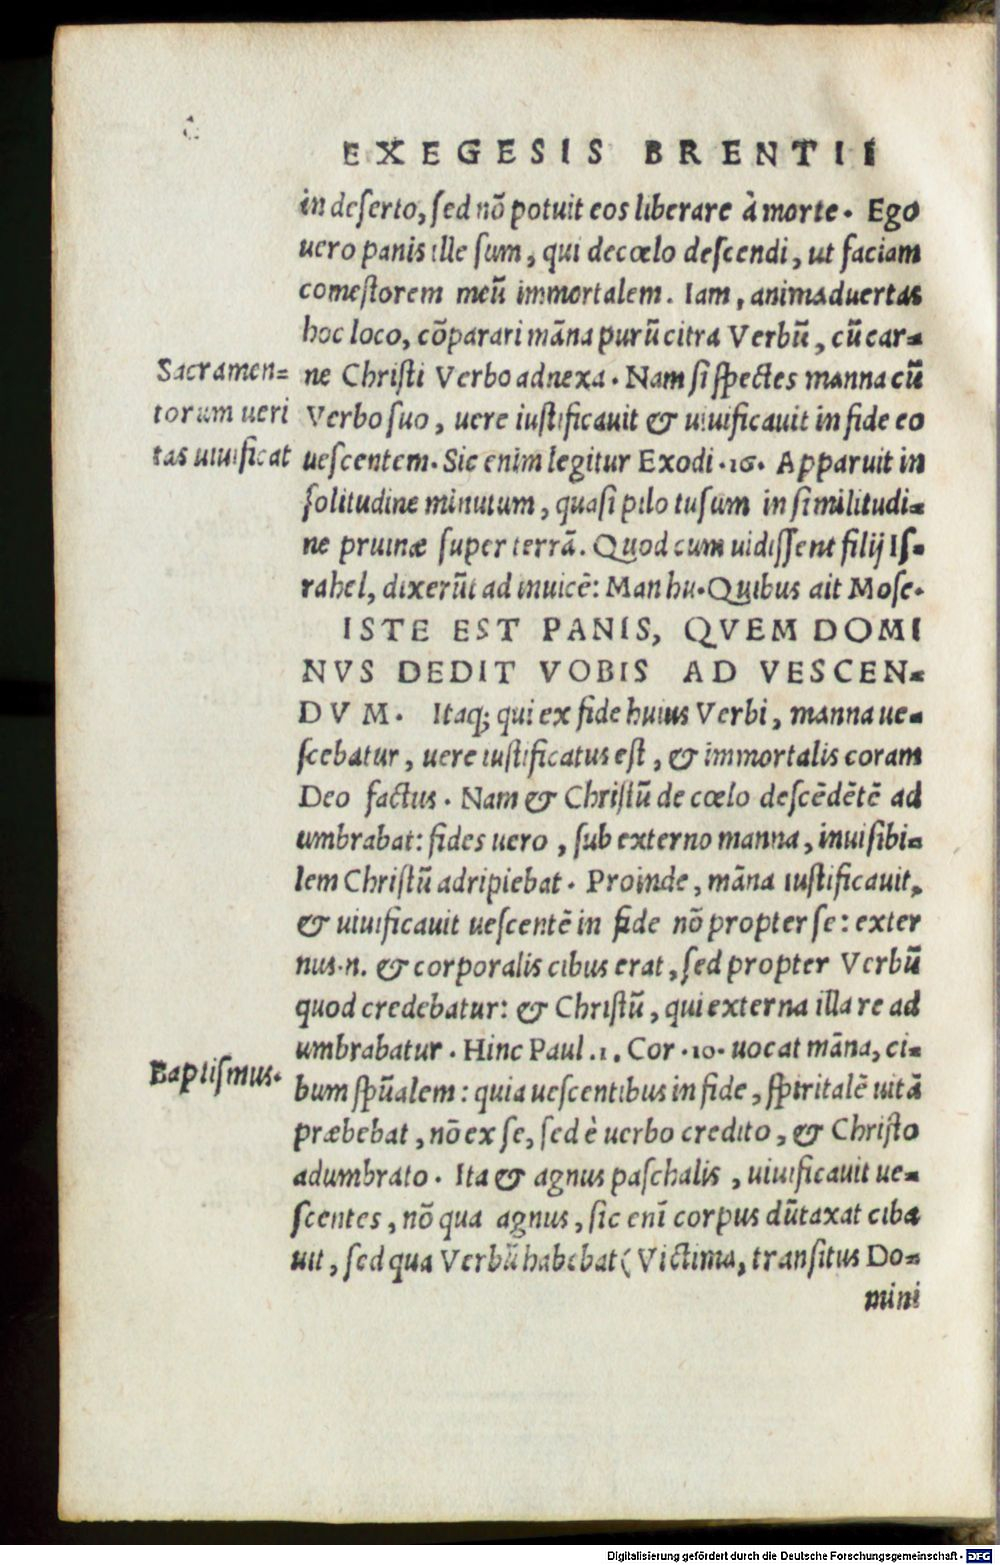 EXEGESIS BRENTII
in deſerto, ſed nõ potuit eos liberare à morte. Ego
uero panis ille ſum, qui de cœlo deſcendi, ut faciam
comeſtorem meũ immortalem. Iam, animaduertas
hoc loco, cõparari mãna purũ citra Verbũ, cũ car-
ne Chriſti Verbo adnexa. Nam ſi ſpectes manna cũ
Verbo ſuo, uere iuſtificauit & uiuificauit in fide eo
ueſcentem. Sic enim legitur Exodi .16. Apparuit in
ſolitudine minutum, quaſi pilo tuſum in ſimilitudi-
ne pruinæ ſuper terrã. Quod cum uidiſſent filij Iſ-
rahel, dixerũt ad inuicẽ: Man hu. Quibus ait Moſe.
ISTE EST PANIS, QVEM DOMI
NVS DEDIT VOBIS AD VESCEN-
DVM. Itaq; qui ex fide huius Verbi, manna ue-
ſcebatur, uere iuſtificatus eſt, & immortalis coram
Deo factus. Nam & Chriſtũ de cœlo deſcẽdẽtẽ ad
umbrabat: fides uero, ſub externo manna, inuiſibi-
lem Chriſtũ adripiebat. Proinde, mãna iuſtificauit,
& uiuificauit ueſcentẽ in fide nõ propter ſe: exter
nus.n. & corporalis cibus erat, ſed propter Verbũ
quod credebatur: & Chriſtũ, qui externa illa re ad
umbrabatur. Hinc Paul .1. Cor .10. uocat mãna, ci-
bum ſpũalem: quia ueſcentibus in fide, ſpiritalẽ uitã
præbebat, nõ ex ſe, ſed è uerbo credito, & Chriſto
adumbrato. Ita & agnus paſchalis, uiuificauit ue-
ſcentes, nõ qua agnus, ſic enĩ corpus dũtaxat ciba
uit, ſed qua Verbũ habebat (Victima, tranſitus Do-
mini
Sacramen-
torum ueri
tas uiuificat
Baptiſmus.
Digitalisierung gefördert durch die Deutsche Forschungsgemeinschaft - DFG